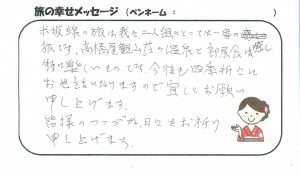 旅の幸せメッセージ (ペンネーム: )
米坂線の旅は我々二人組にとっては一番の癒し
旅です。高橋屋観山荘の温泉と部屋食は
特に楽しいものです。今後も四季折々に
お世話になりますので宜しくお願い
申し上げます。
皆様のつつがない日々をお祈り
申し上げます。